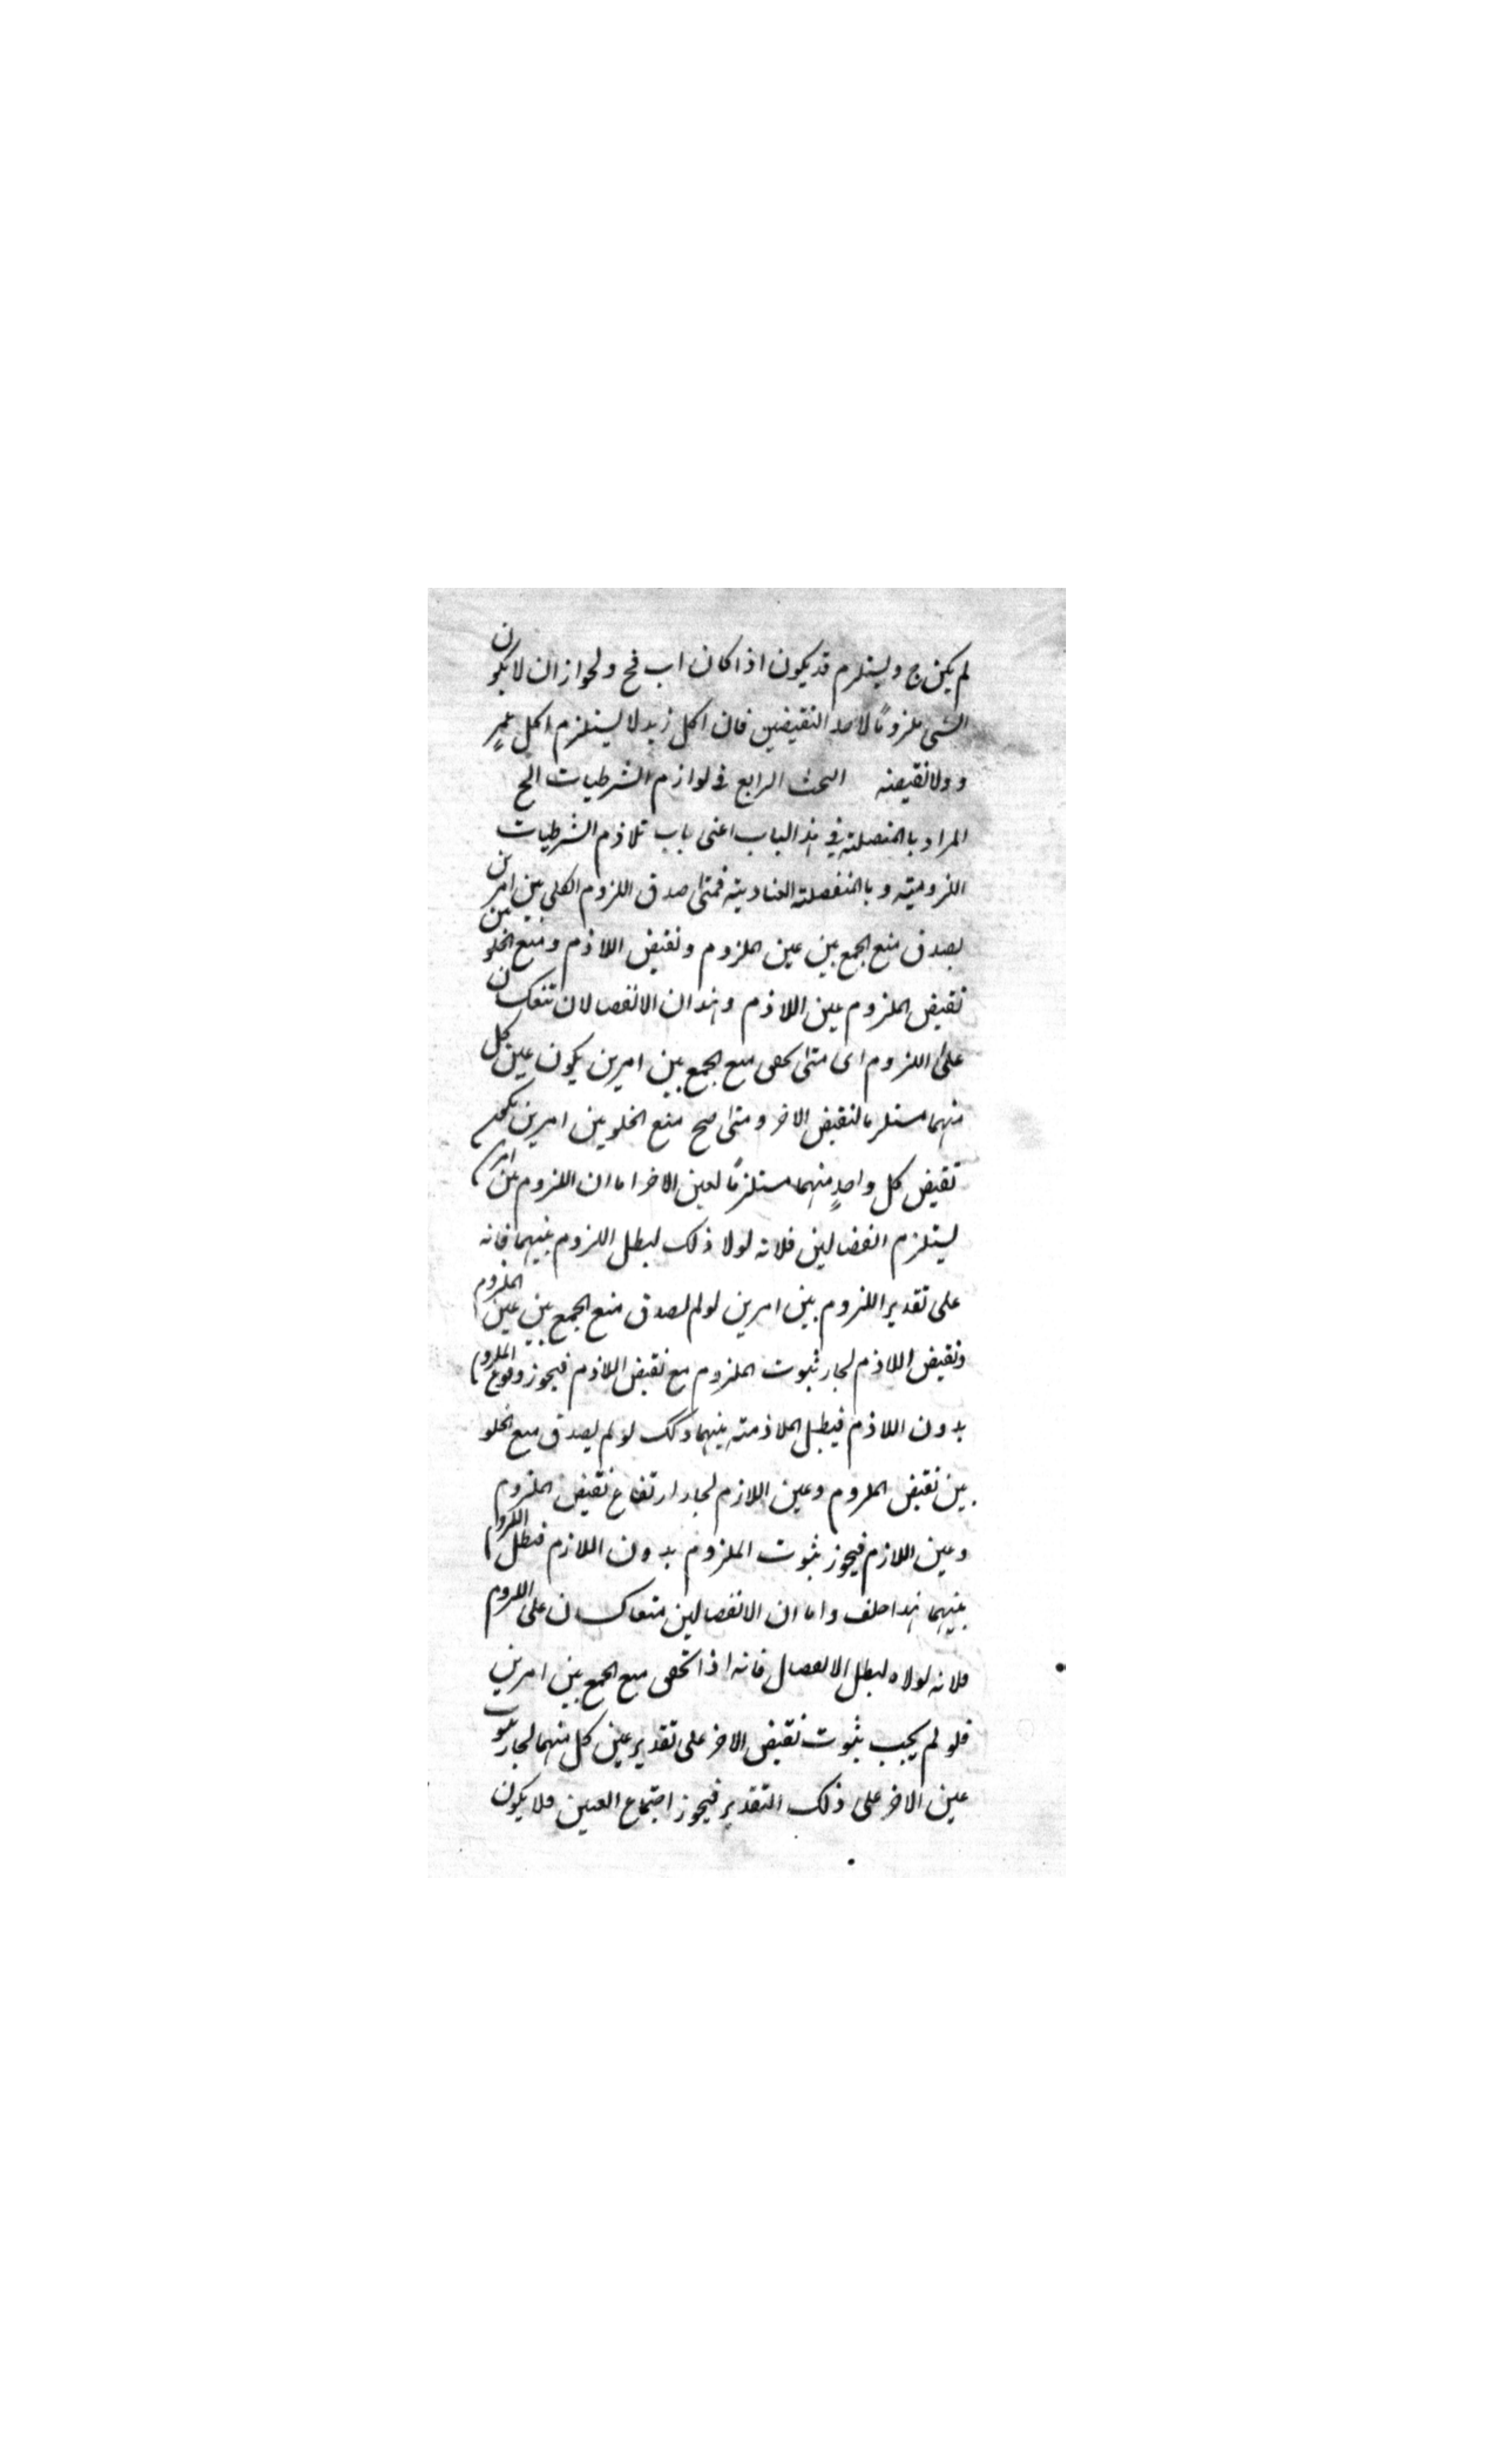 لم يكن ج د يستلزم قد يكون اذا كان اب فج د لجواز ان لا يكون
الشى ملزومًا لاحد النقيضين فان اكل زيد لا يستلزم اكل عمرٍ
و ولا نقيضه البحث الرابع فى لوازم الشرطيات الخ
المراد بالمتصلة فى هذا الباب اعنى باب تلازم الشرطيات
اللزومية و بالمنفصلة العنادية فمتى صدق اللزوم الكلى بين امرين
يصدق منع الجمع بين عين الملزوم ونقيض اللازم ومنع الخلو بين
نقيض الملزوم عين اللازم وهذان الانفصالان تنعكسان
على اللزوم اى متى تحقق منع الجمع بين امرين يكون عين كل
منهما مستلزما لنقيض الاخر ومتى صح منع الخلو بين امرين يكون
نقيض كل واحدٍ منهما مستلزمًا لعين الاخر اما ان اللزوم بين امرين
يستلزم انفصالين فلانه لولا ذلك لبطل اللزوم بينهما فانه
على تقدير اللزوم بين امرين لو لم يصدق منع الجمع بين عين الملزوم
ونقيض اللازم لجاز ثبوت الملزوم مع نقيض اللازم فيجوز وقوع الملزوم
بدون اللازم فيبطل الملازمة بينهما وكك لو لم يصدق منع الخلو
بين نقيض الملزوم وعين اللازم لجاز ارتفاع نقيض الملزوم
وعين اللازم فيجوز ثبوت الملزوم بدون اللازم فبطل اللزوم
بينهما هذا خلف واما ان الانفصالين متعاكسان على اللزوم
فلانه لولاه لبطل الانفصال فانه اذا تحقق منع الجمع بين امرين
فلو لم يجب ثبوت نقيض الاخر على تقدير عين كل منهما لجاز ثبوت
عين الاخر على ذلك التقدير فيجوز اجتماع العينين فلا يكون